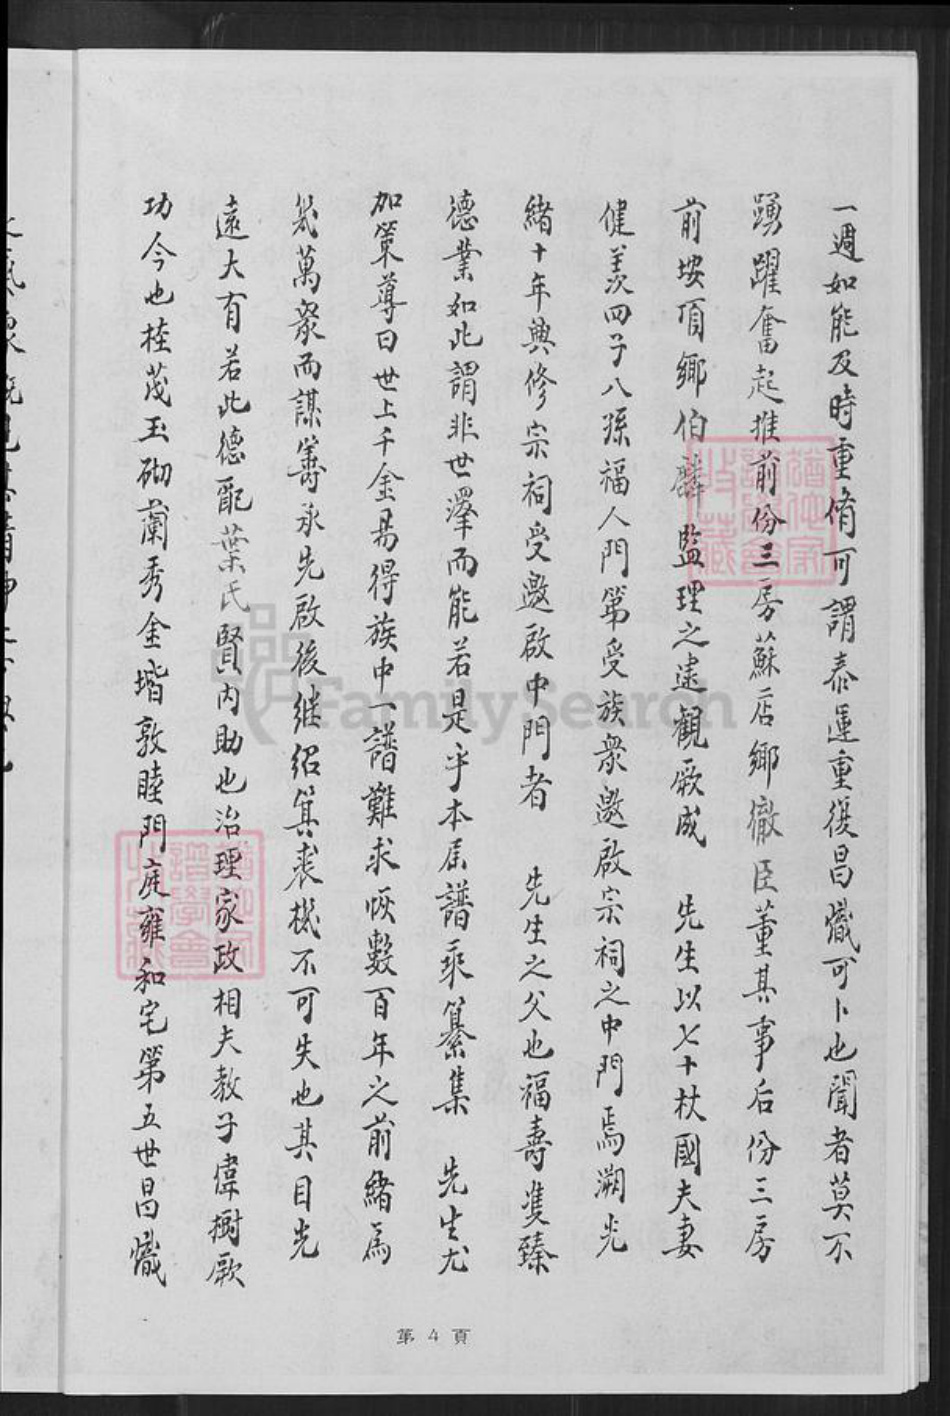 一週如能及時重脩可謂泰運重復昌熾可卜也聞者莫不
踴躍奮起推前份三房蘇店鄉徹臣董其事后份三房
前垵頂鄉伯麟 監理之逮觀厥成 先生以七十杖國夫妻
健羨四子八孫福人門第受族衆邀啟宗祠之中門焉溯光
緒十年興修宗祠受邀啟中門者 先生之父也福壽隻臻
德業如此謂非世澤而能若是乎本屆譜乘纂集 先生尤
加策尊曰世上千金易得族中一譜難求恢數百年之前緒爲
幾萬衆而謀籌承先啟後继紹箕裘機不可失也其目光
遠大有若此德配葉氏賢內助也治理家政相夫教子偉樹厥
功今也桂茂玉砌蘭秀金堦敦睦門庭雍和宅第五世昌熾
第4頁
FamilySearch